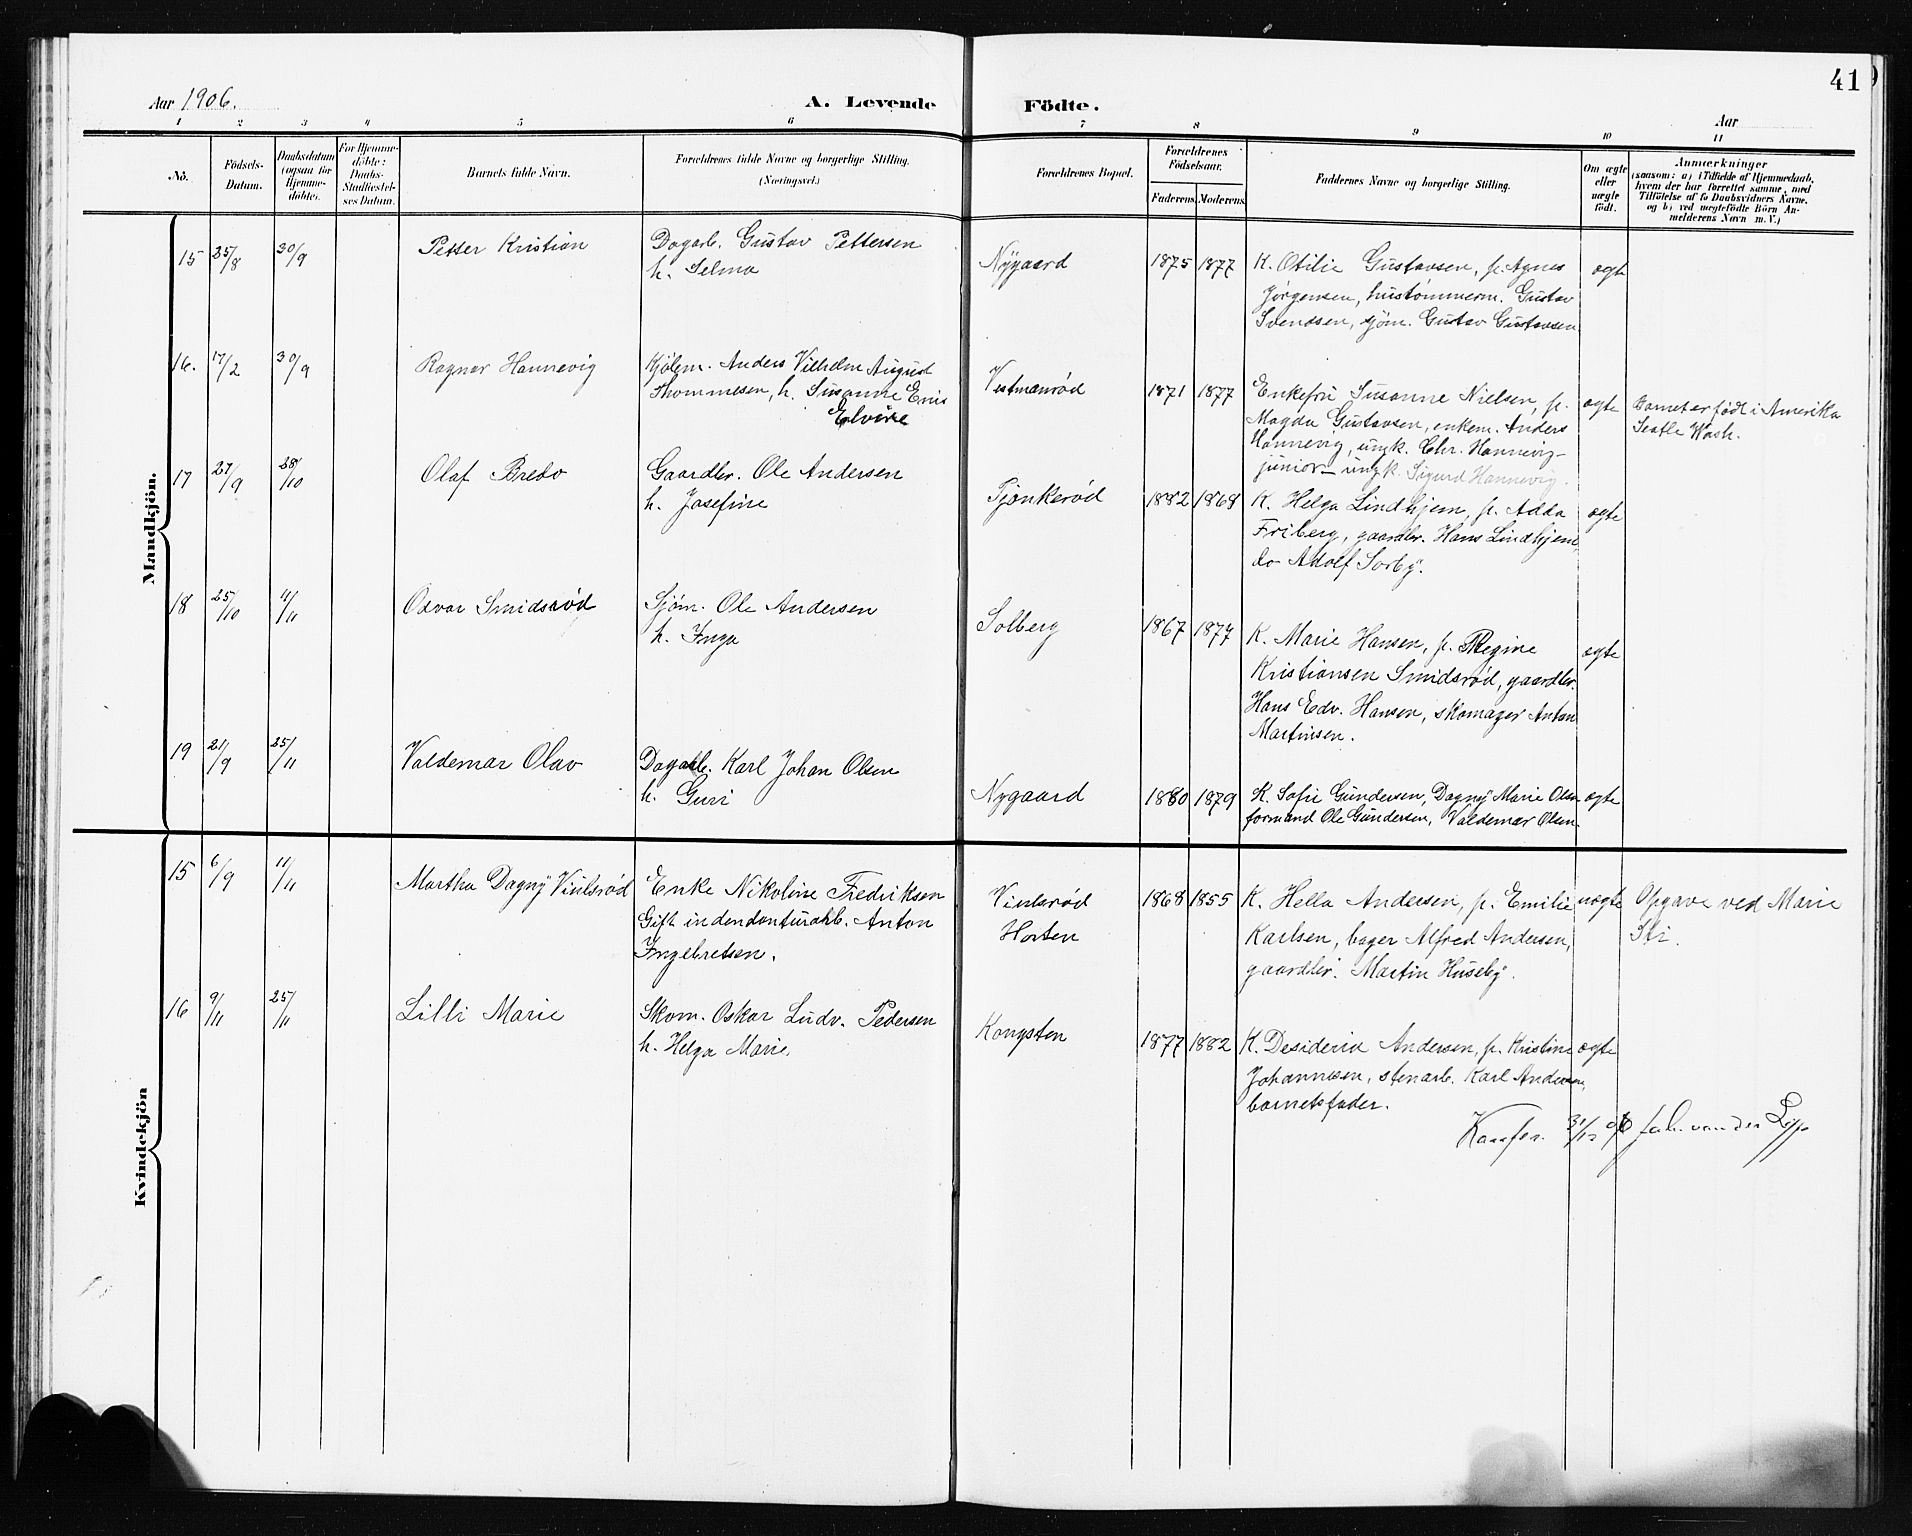 41
Aar 1906.
A. Levende Födte.
Aar
1 2 3 4 5 6 7 8 9 10 11
No.
Födsels-
Datum.
Daabsdatum
(ogsaa for
Hjemme-
döbte).
For Hjemme-
döbte:
Daabs-
Stadfæstel-
ses Datum.
Barnets fulde Navn.
Forældrenes fulde Navne og borgerlige Stilling.
(Næringsvei.)
Forældrenes Bopæl.
Forældrenes
Födselsaar.
Faderens. Moderens.
Faddernes Navne og borgerlige Stilling.
Om ægte
eller
uægte
født.
Anmærkninger
(saasom: a) i Tilfælde af Hjemmedaab,
hvem der har forrettet samme, med
Tilföielse af to Daabsvidners Navne,
og b) ved uægtefödte Börn An-
melderens Navn m. V.)
Mandkjön.
15 25/8 30/9 Petter Kristian
Dagarb. Gustav Pettersen
h. Selma
Nygaard 1875 1877
K. Otilie Gustavsen, p. Agnes
Jørgensen, hustømmerm. Gustav
Svendsen, sjöm. Gustav Gustavsen
ægte
16. 17/2 30/9 Ragnar Hannevig
Kjölem. Anders Vilhelm August
Thommesen, h. Susanne Enis
Elvire
Vestmanrød 1871 1877
Enkefru Susanne Nielsen, p.
Magda Gustavsen, enkem. Anders
Hannevig, ungk. Chr. Hannevig
junior - ungk. Sigurd Hannevig.
ægte
Barnet er født i Amerika
Seatle Wash.
17 27/9 28/10 Olaf Bredo
Gaardbr. Ole Andersen
h. Josefine
Tjonkerød 1882 1868
K. Helga Lindhjem, p. Adda
Friberg, gaardbr. Hans Lindhjem,
do Adolf Sorby.
ægte
18 25/10 4/11 Odvar Smidsrød
Sjöm. Ole Andersen
h. Inga
Solberg 1867 1877
K. Marie Hansen, p. Regine
Kristiansen Smidsrød, gaardbr.
Hans Edv. Hansen, skomager Anton
Martinsen.
ægte
19 21/9 25/11 Valdemar Olav
Dagarb. Karl Johan Olsen
h. Guri
Nygaard 1880 1879
K. Sofie Gundersen, Dagny Marie Olsen
formand Ole Gundersen, Valdemar Olsen.
ægte
Kvindekjön
15 6/9 11/11 Martha Dagny Vinlsrød
Enke Nikoline Fredriksen
Gift indendanturarb. Anton
Ingebretsen.
Vinlsrød
Horten
1868 1855
K. Hella Andersen, p. Emilie
Karlsen, bager Alfred Andersen,
gaardbr. Martin Huseby.
uægte
Opgave ved Marie
Sti.
16 9/11 25/11 Lilli Marie
Skom. Oskar Ludv. Pedersen
h. Helga Marie.
Kongsten 1877 1882
K. Desideria Andersen, p. Kristine
Johannesen, stenarb. Karl Andersen,
barnetsfader.
ægte
Konfer. 31/12 06 Joh. van der Lipp